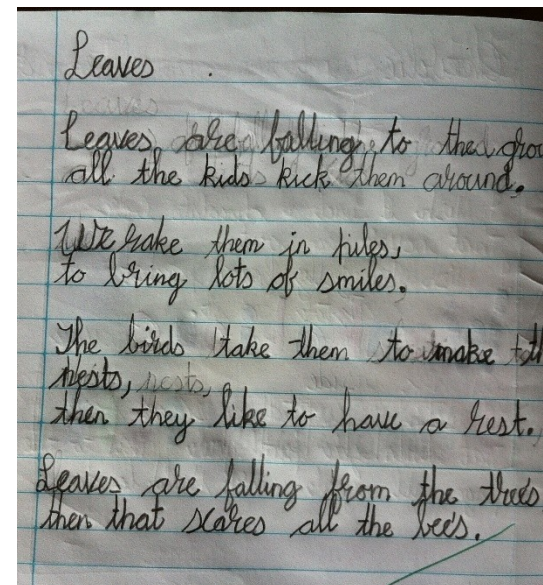 Leaves
Leaves are falling to the grou
all the kids kick them around.
We rake them in piles,
to bring lots of smiles.
The birds take them to make
nests, nests,
then they like to have a rest.
Leaves are falling from the trees
then that scares all the bees.